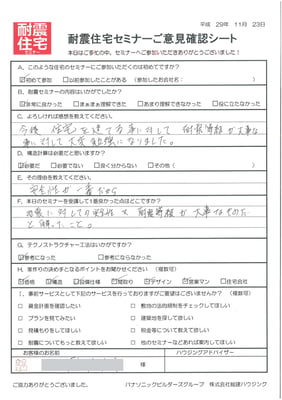 耐震
住宅
セミナー
平成 29年 11月 23日
耐震住宅セミナーご意見確認シート
本日はご多忙の中、セミナーへご参加いただきありがとうございました!
A、このような住宅のセミナーにご参加いただくのは初めてですか?
☑初めて参加 □以前参加したことがある (参加したお会社名: )
B、耐震セミナーの内容はいかがでしたか?
☑非常に良かった □まぁまぁ理解できた □あまり理解できなかった □役に立たなかった
C、よろしければ感想を教えてください。
今後 住宅を建てる事に対して 耐震等級が大事な
事に対して大変勉強になりました。
D、構造計算は必要だと思いますか?
☑必要だ □必要でない □良く分からない □その他 ( )
E、その理由を教えてください。
安全性が一番だから
F、本日のセミナーを受講して1番良かった点はどこですか?
地震に対しての安全性と 耐震等級が大事なものだ
と解ったこと。
G、テクノストラクチャー工法はいかがですか?
☑参考になった □参考にならなかった
H、家作りの決め手となるポイントをお聞かせください (複数可)
☑価格 ☑構造 ☑設備仕様 ☑間取り ☑デザイン ☑営業マン □住宅会社
I、事前サービスとして下記のサービスを行っておりますがご要望はございませんか? (複数可)
□ 資金計画を確認したい □ 敷地の法的規制をチェックしてほしい
□ プランを見てみたい □ 建築地を探して欲しい
□ 見積もりをしてほしい □ 税金等について教えてほしい
□ 工事について教えて欲しい □ 他のセミナーなどあれば案内してほしい
お客様のお名前 ハウジングアドバイザー
様
ご協力ありがとうございました。 パナソニックビルダーズグループ 株式会社総建ハウジング